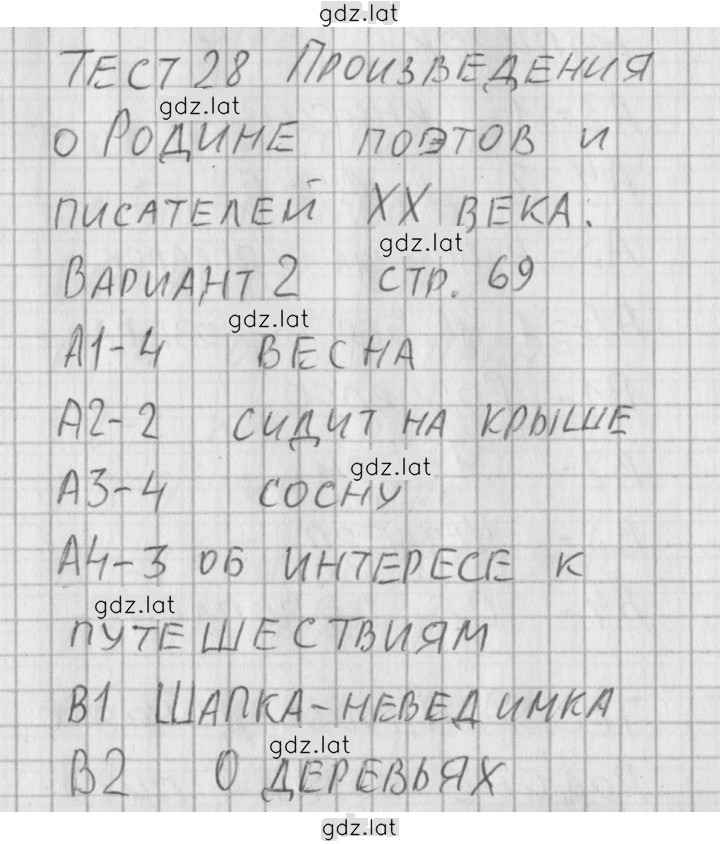 gdz.lat
ТЕСТ 28 ПРОИЗВЕДЕНИЯ
gdz.lat
О РОДИНЕ ПОЭТОВ И
ПИСАТЕЛЕЙ XX ВЕКА:
gdz.lat
ВАРИАНТ 2 СТР. 69
gdz.lat
А1-4 ВЕСНА
А2-2 СИДИТ НА КРЫШЕ
gdz.lat
А3-4 СОСНУ
А4-3 ОБ ИНТЕРЕСЕ К
gdz.lat
ПУТЕШЕСТВИЯМ
В1 ШАПКА-НЕВЕДИМКА
gdz.lat
В2 О ДЕРЕВЬЯХ
gdz.lat